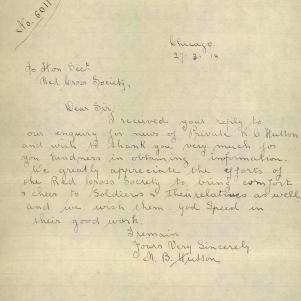 (No. 6011)
Chicago
27-3-18
To Hon Secty
Red Cross Society,
Dear Sir,
I received your reply to
our enquiry for news of Private W. O Hutton
and wish to thank you very much for
you kindness in obtaining information.
We greatly appreciate the efforts of
the Red Cross Society to bring comfort
& cheer to Soldiers & Their relatives as well
and we wish them God Speed in
their good work.
I remain
Yours Very Sincerely
M. B. Hutton